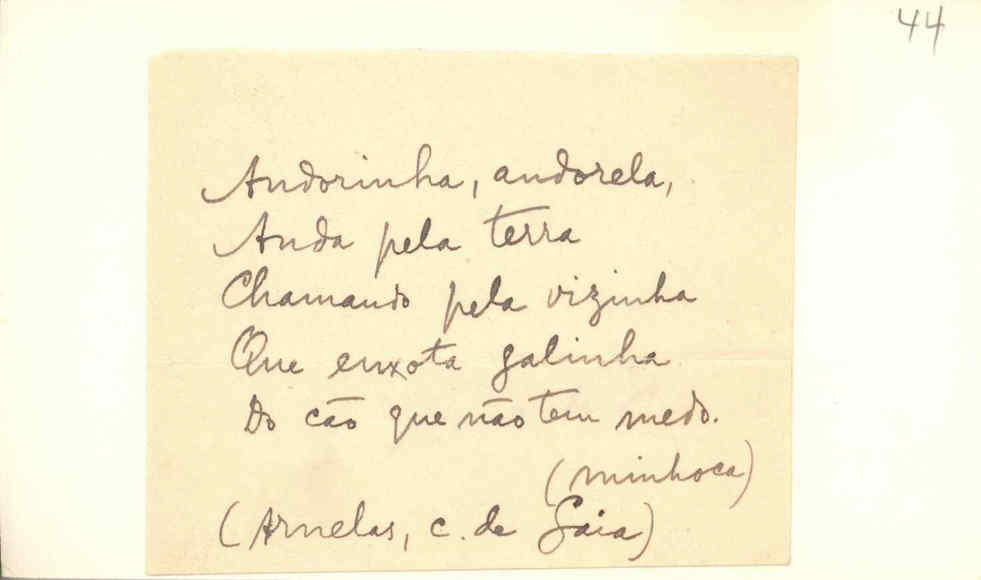 44
Andorinha, andorela,
Anda pela terra
Chamando pela vizinha
Que enxota galinha
Do cão que não tem medo.
(minhoca)
(Arnelas, c. de Gaia)